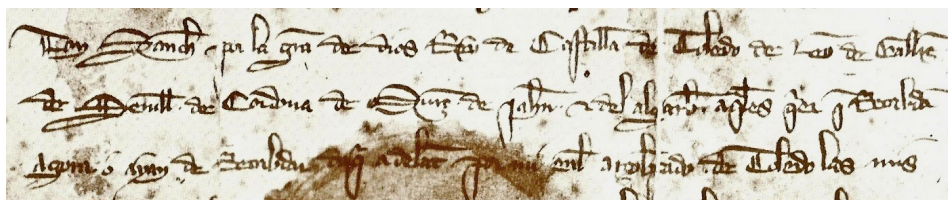 Don Sancho por la gra de dios Rey de Castiella de Toledo de Leo de Gallis
de Seuill de Cordoua de Murç de Jahn τ del algarbe a qles qer q Recabdã
agora o ayan de Recabdar daqi adelãt por mi enl arçobpado de Toledo las mis